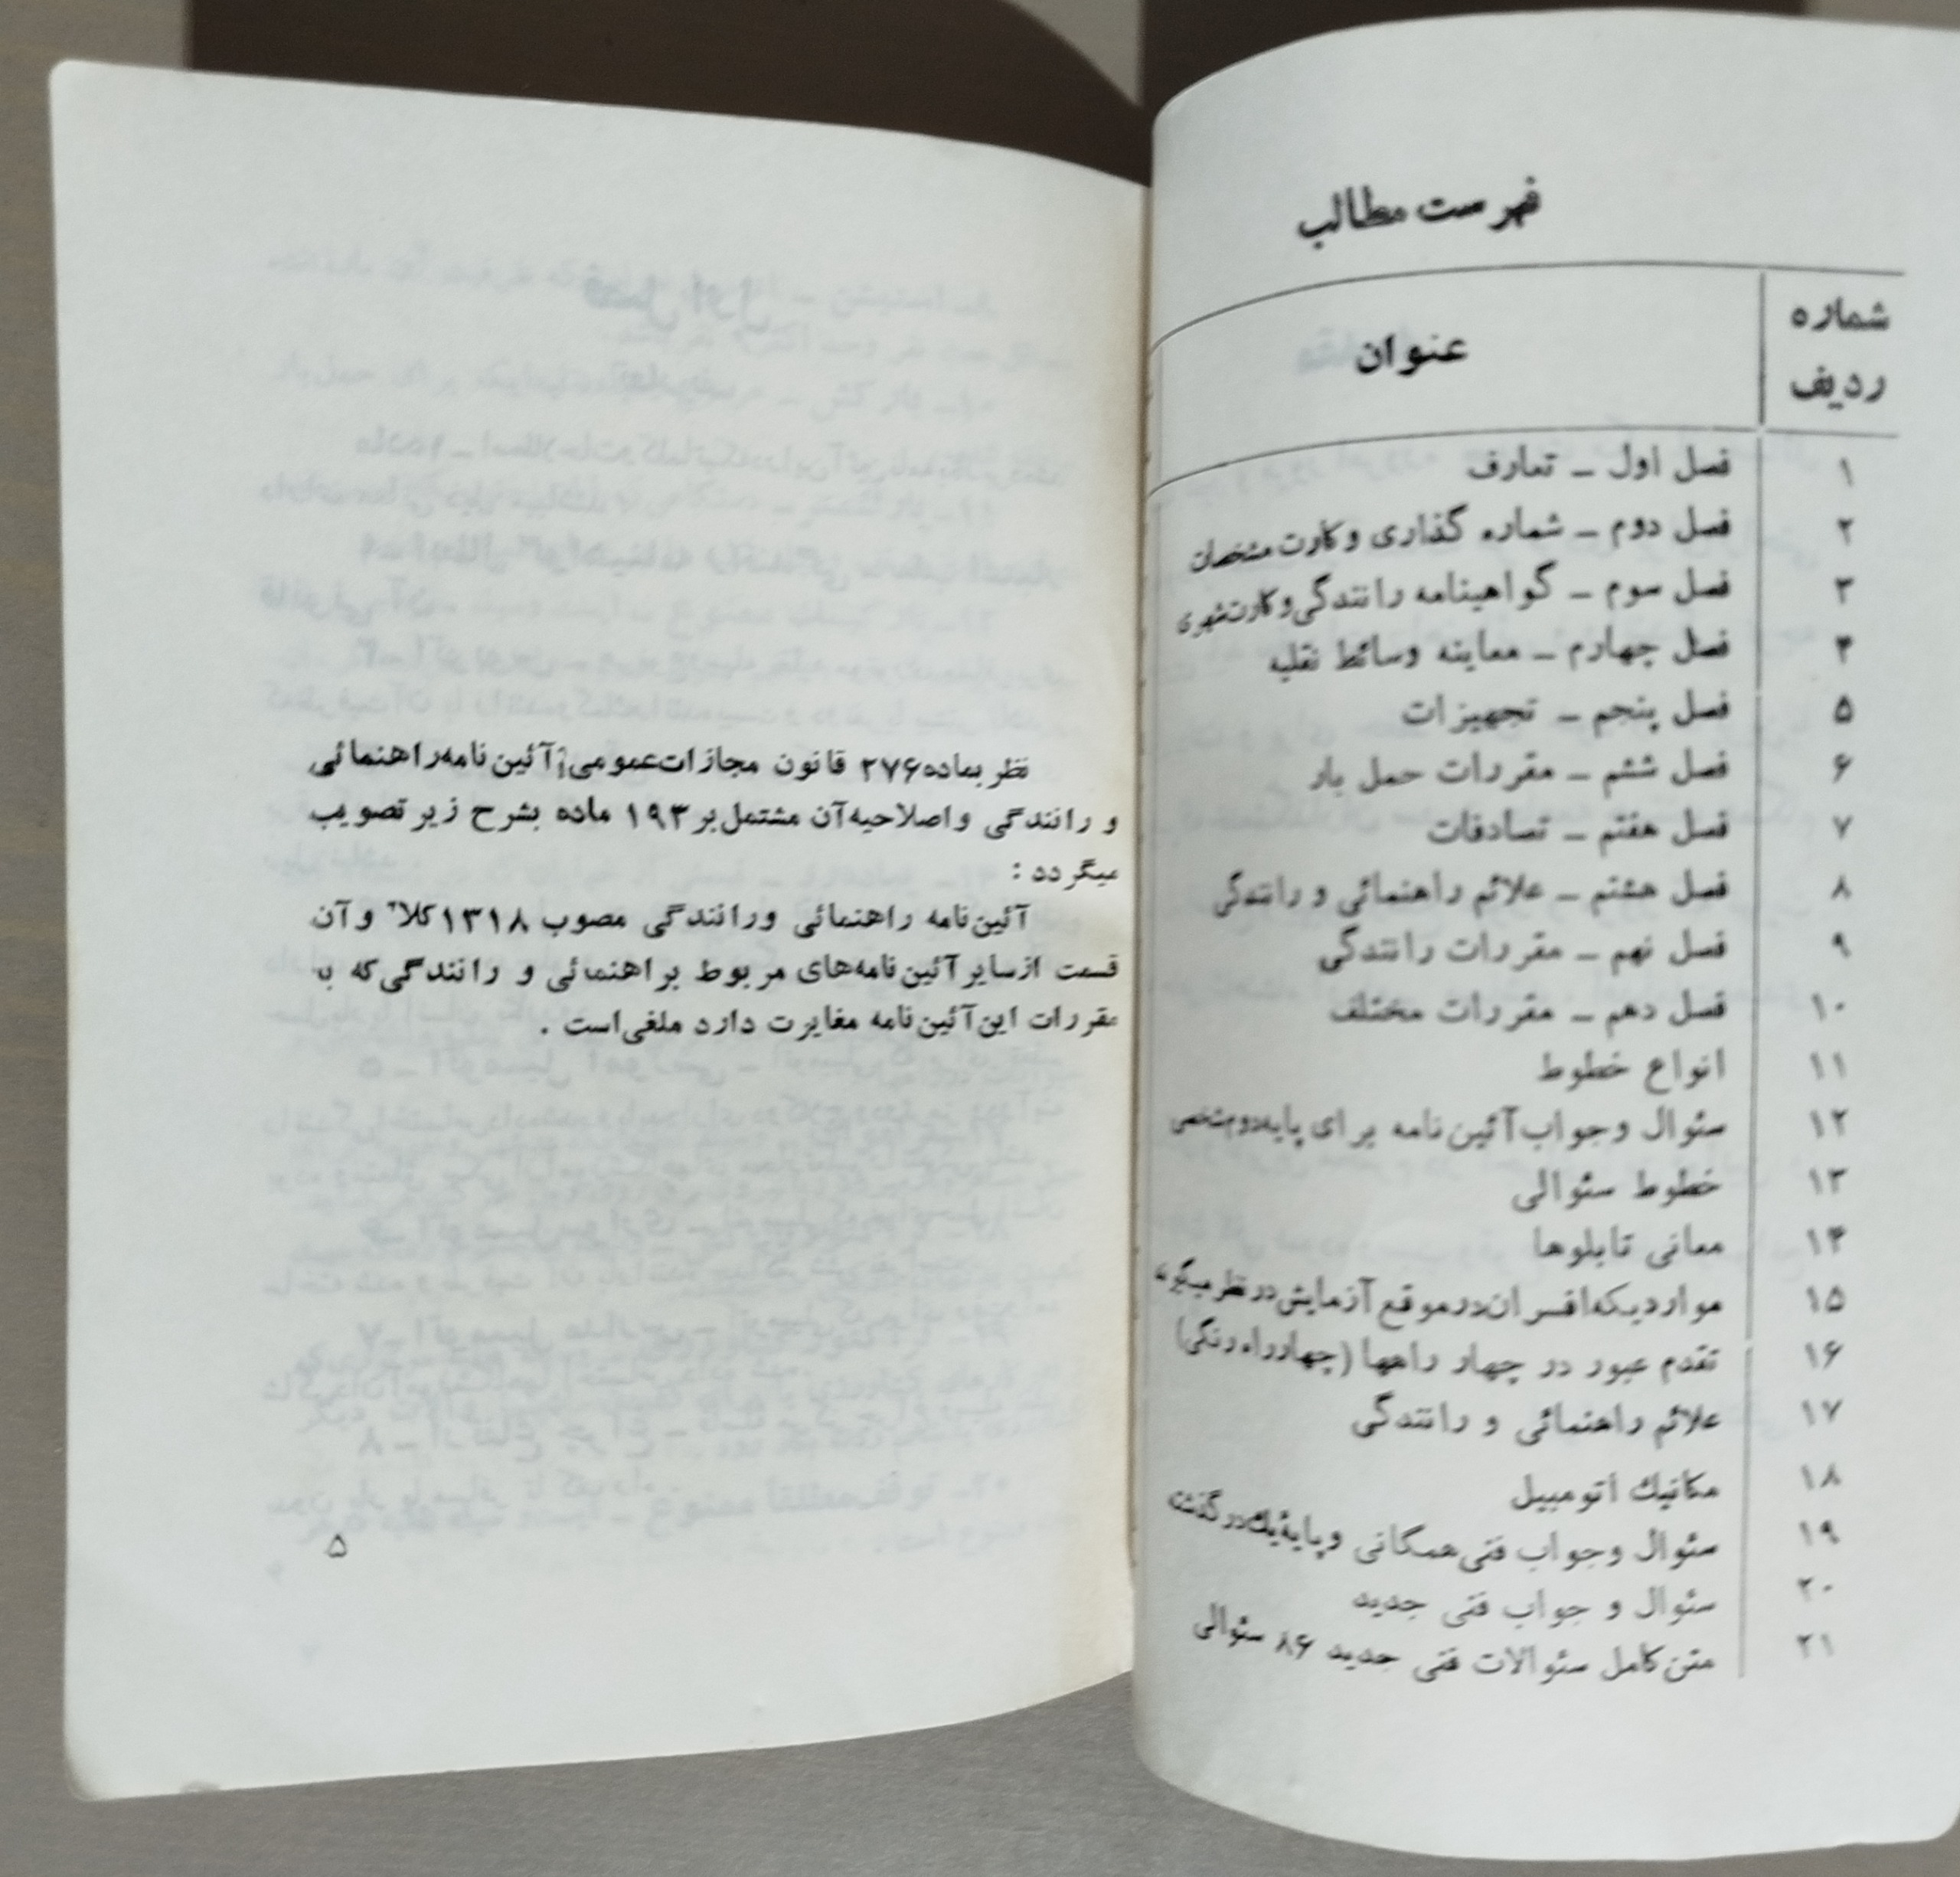 فهرست مطالب
شماره ردیف
عنوان
۱ فصل اول ــ تعارف
۲ فصل دوم ــ شماره گذاری و کارت مشخصات
۳ فصل سوم ــ گواهینامه رانندگی و کارت شهری
۴ فصل چهارم ــ معاینه وسائط نقلیه
۵ فصل پنجم ــ تجهیزات
۶ فصل ششم ــ مقررات حمل بار
۷ فصل هفتم ــ تصادفات
۸ فصل هشتم ــ علائم راهنمائی و رانندگی
۹ فصل نهم ــ مقررات رانندگی
۱۰ فصل دهم ــ مقررات مختلف
۱۱ انواع خطوط
۱۲ سئوال و جواب آئین نامه برای پایه دوم شخصی
۱۳ خطوط سئوالی
۱۴ معانی تابلوها
۱۵ مواردیکه افسران در موقع آزمایش در نظر میگیرند
۱۶ تقدم عبور در چهار راهها (چهارراه رنگی)
۱۷ علائم راهنمائی و رانندگی
۱۸ مکانیك اتومبیل
۱۹ سئوال و جواب فنی همگانی و پایه یك در گذشته
۲۰ سئوال و جواب فنی جدید
۲۱ متن کامل سئوالات فنی جدید ۸۶ سئوالی
نظر بماده ۲۷۶ قانون مجازات عمومی آئین نامه راهنمائی
و رانندگی و اصلاحیه آن مشتمل بر ۱۹۳ ماده بشرح زیر تصویب
میگردد :
آئین نامه راهنمائی ورانندگی مصوب ۱۳۱۸ کلا و آن
قسمت از سایر آئین نامه‌های مربوط براهنمائی و رانندگی که با
مقررات این آئین نامه مغایرت دارد ملغی است .
۵